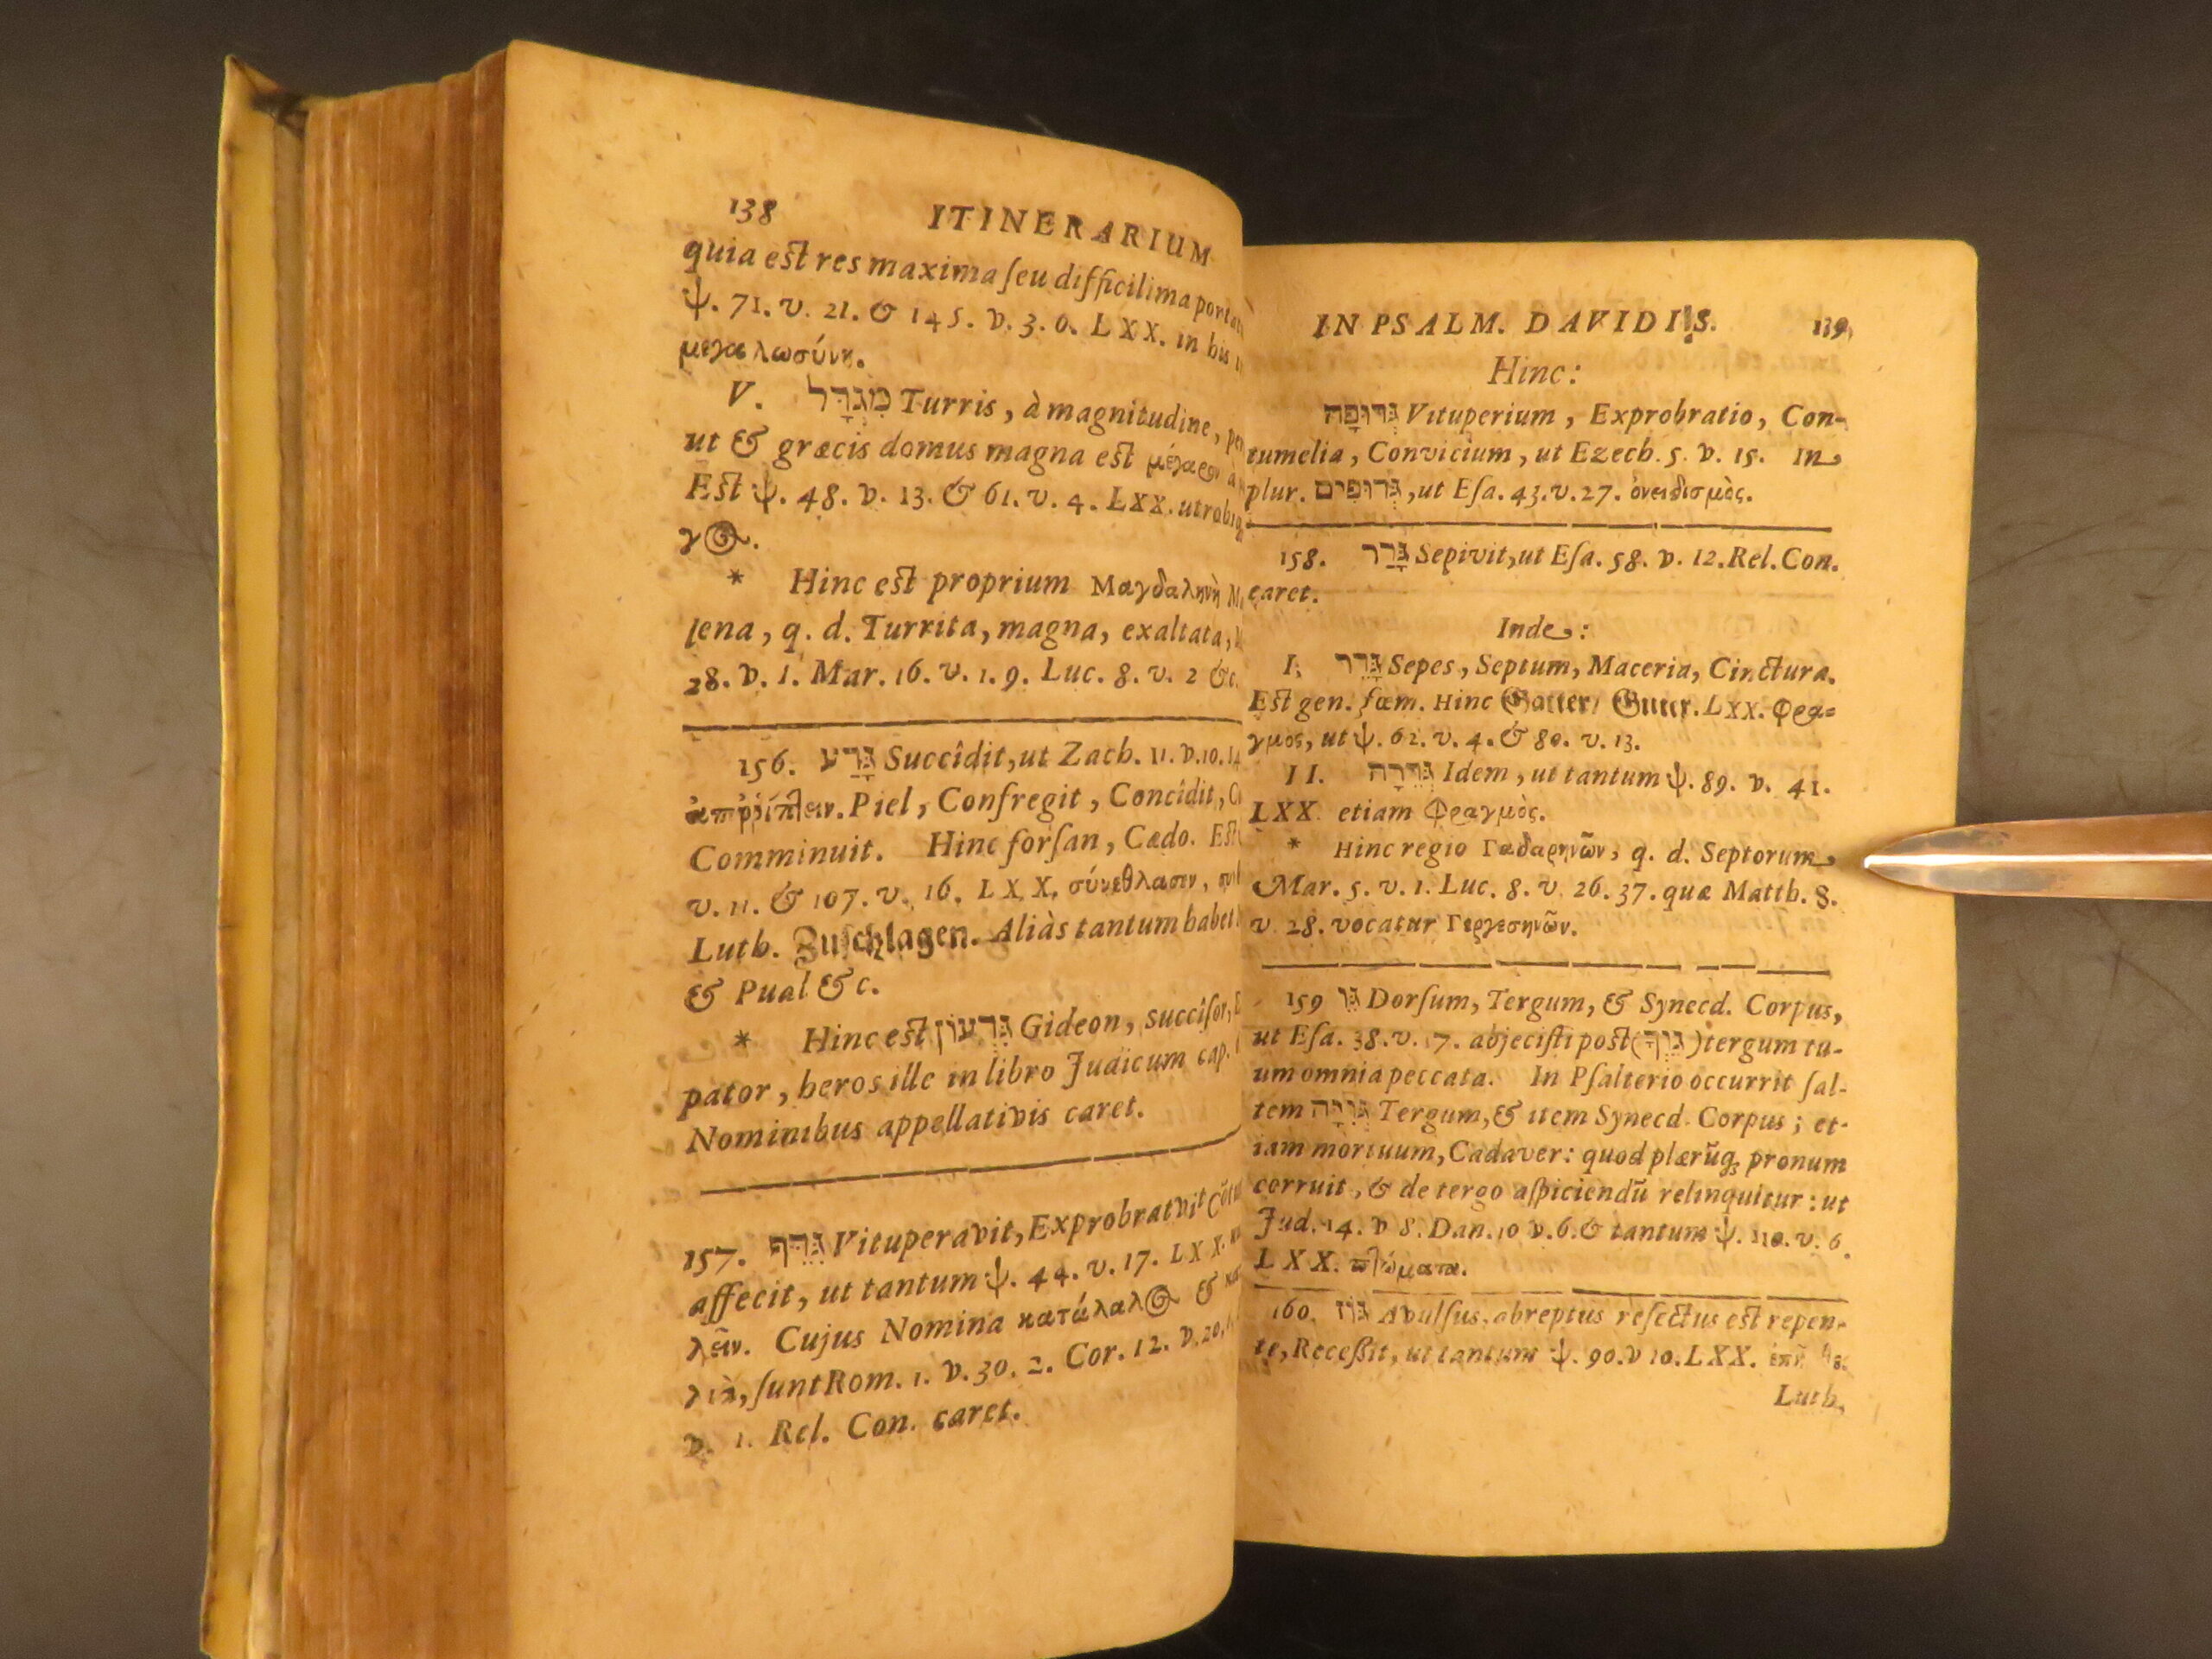 138 ITINERARIUM
quia est res maxima seu difficilima
ψ. 71. v. 21. & 145. v. 3. 6. LXX. in his
μεγαλωσύνη.
V. מִגְדָּל Turris, à magnitudine,
ut & græcis domus magna est μέγαρον à
Est ψ. 48. v. 13. & 61. v. 4. LXX.
γ⊙.
* Hinc est proprium Μαγδαληνὴ
lena, q. d. Turrita, magna, exaltata,
28. v. 1. Mar. 16. v. 1. 9. Luc. 8. v. 2 &c.
156. גָּדַע Succîdit, ut Zach. 11. v. 10. 14
Piel, Confregit, Concîdit,
Comminuit. Hinc forsan, Cædo. Est
v. 11. & 107. v. 16. LXX. σύνεθλασεν,
Luth. Zuschlagen. Aliàs tantum habet
& Pual &c.
* Hinc est גִּדְעוֹן Gideon, succisor,
pator, heros ille in libro Judicum cap.
Nominibus appellativis caret.
157. גִּדֵּף Vituperavit, Exprobravit
affecit, ut tantum ψ. 44. v. 17. LXX.
λεῖν. Cujus Nomina κατάλαλ⊙ &
λιὰ, sunt Rom. 1. v. 30. 2. Cor. 12. v. 20.
v. 1. Rel. Con. caret.
IN PSALM. DAVIDIS. 139
Hinc:
גְּדוּפָה Vituperium, Exprobratio, Con-
tumelia, Convicium, ut Ezech. 5. v. 15. In
plur. גְּדוּפִים, ut Esa. 43. v. 27. ὀνειδισμὸς.
158. גָּדַר Sepivit, ut Esa. 58. v. 12. Rel. Con.
caret.
Inde:
I. גָּדֵר Sepes, Septum, Maceria, Cinctura.
Est gen. fœm. Hinc Gatter/ Gitter. LXX. Φρα-
γμὸς, ut ψ. 62. v. 4. & 80. v. 13.
II. גְּדֵרָה Idem, ut tantum ψ. 89. v. 41.
LXX etiam Φραγμὸς.
* Hinc regio Γαδαρηνῶν, q. d. Septorum
Mar. 5. v. 1. Luc. 8. v. 26. 37. quæ Matth. 8.
v. 28. vocatur Γεργεσηνῶν.
159 גֵּו Dorsum, Tergum, & Synecd. Corpus,
ut Esa. 38. v. 17. abjecisti post (גֵּוְךָ) tergum tu-
um omnia peccata. In Psalterio occurrit sal-
tem גְּוִיָּה Tergum, & item Synecd. Corpus; et-
iam mortuum, Cadaver: quod plærūq; pronum
corruit, & de tergo aspiciendū relinquitur: ut
Jud. 14. v 8. Dan. 10 v. 6. & tantum ψ. 110. v. 6.
LXX. πτώματα.
160. גּוּז Avulsus, abreptus resectus est repen-
te, Recessit, ut tantum ψ. 90. v 10. LXX.
Luth.